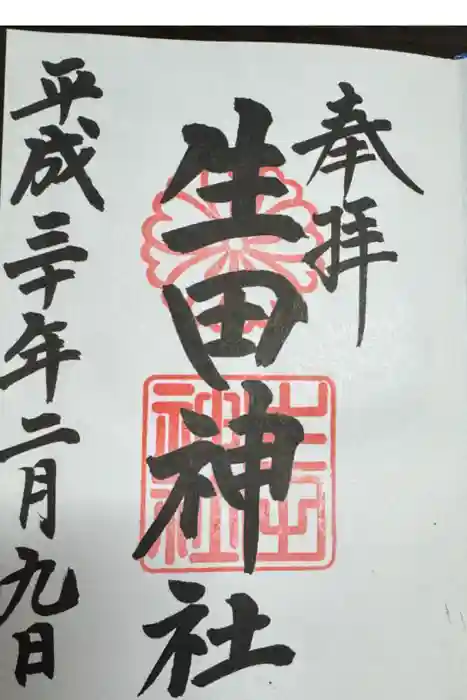 奉拝
生田神社
生田神社
平成三十年二月九日